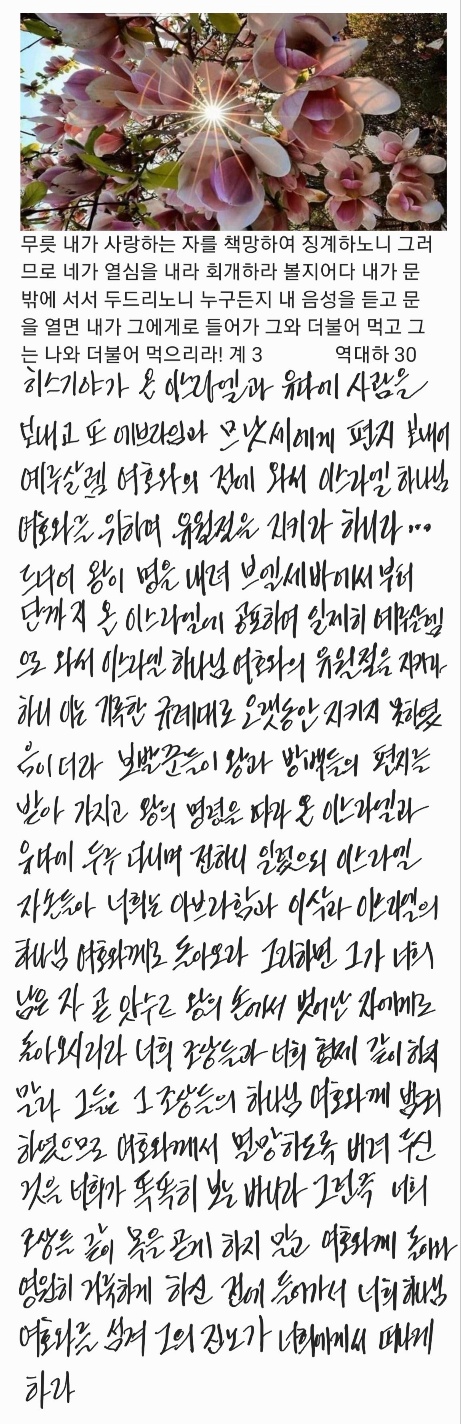 무릇 내가 사랑하는 자를 책망하여 징계하노니 그러
므로 네가 열심을 내라 회개하라 볼지어다 내가 문
밖에 서서 두드리노니 누구든지 내 음성을 듣고 문
을 열면 내가 그에게로 들어가 그와 더불어 먹고 그
는 나와 더불어 먹으리라! 계 3 역대하 30
히스기야가 온 이스라엘과 유다에 사람을
보내고 또 에브라임과 므낫세에게 편지 보내어
예루살렘 여호와의 전에 와서 이스라엘 하나님
여호와를 위하여 유월절을 지키라 하니라...
드디어 왕이 명을 내려 브엘세바에서부터
단까지 온 이스라엘에 공포하여 일제히 예루살렘
으로 와서 이스라엘 하나님 여호와의 유월절을 지키라
하니 이는 기록한 규례대로 오랫동안 지키지 못하였
음이더라 보발꾼들이 왕과 방백들의 편지를
받아 가지고 왕의 명령을 따라 온 이스라엘과
유다에 두루 다니며 전하니 일렀으되 이스라엘
자손들아 너희는 아브라함과 이삭과 이스라엘의
하나님 여호와께로 돌아오라 그리하면 그가 너희
남은 자 곧 앗수르 왕의 손에서 벗어난 자에게로
돌아오시리라 너희 조상들과 너희 형제 같이 하지
말라 그들은 그 조상들의 하나님 여호와께 범죄
하였으므로 여호와께서 멸망하도록 버려 두신
것을 너희가 똑똑히 보는 바니라 그런즉 너희
조상들 같이 목을 곧게 하지 말고 여호와께 돌아와
영원히 거룩하게 하신 전에 들어가서 너희 하나님
여호와를 섬겨 그의 진노가 너희에게서 떠나게
하라